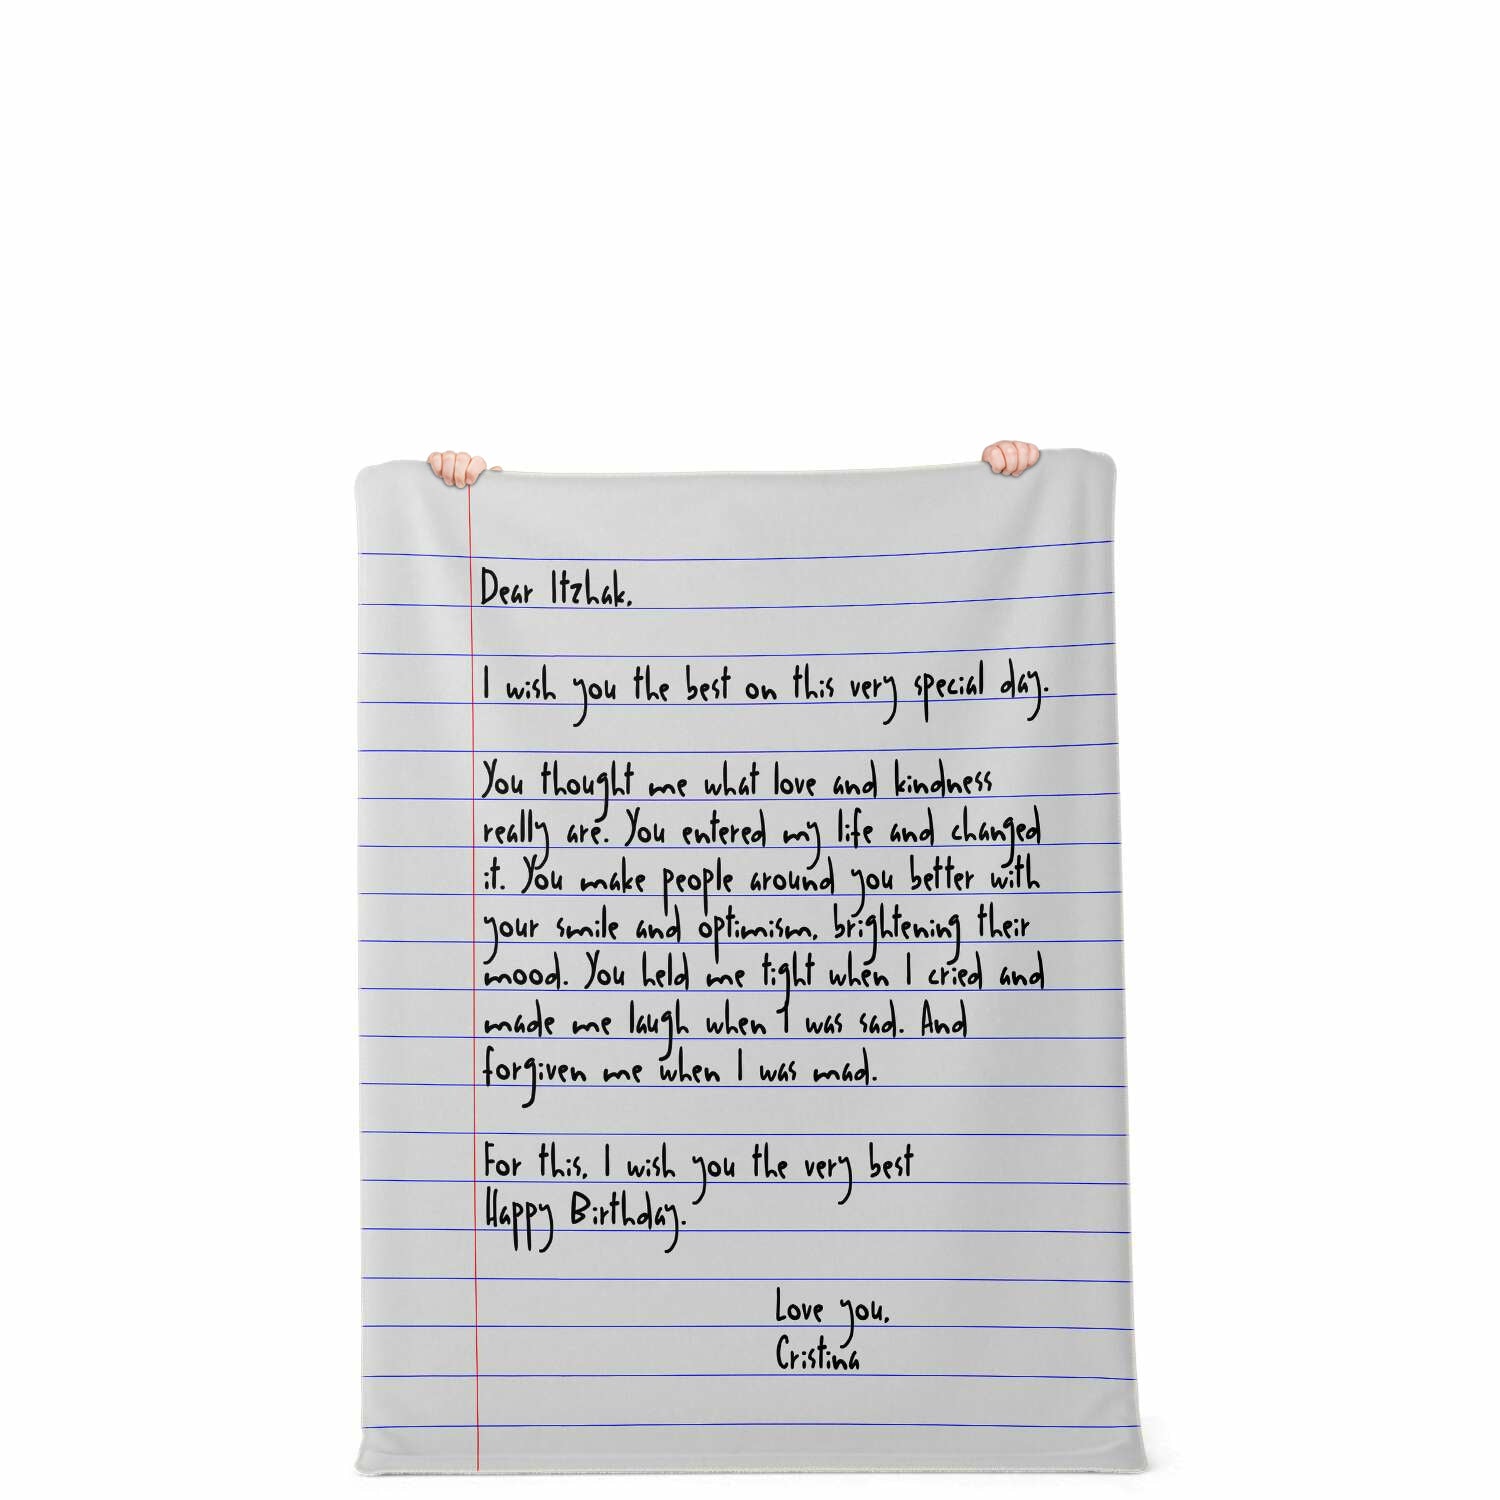 Dear Itzhak,
I wish you the best on this very special day.
You thought me what love and kindness
really are. You entered my life and changed
it. You make people around you better with
your smile and optimism, brightening their
mood. You held me tight when I cried and
made me laugh when I was sad. And
forgiven me when I was mad.
For this, I wish you the very best
Happy Birthday.
Love you,
Cristina